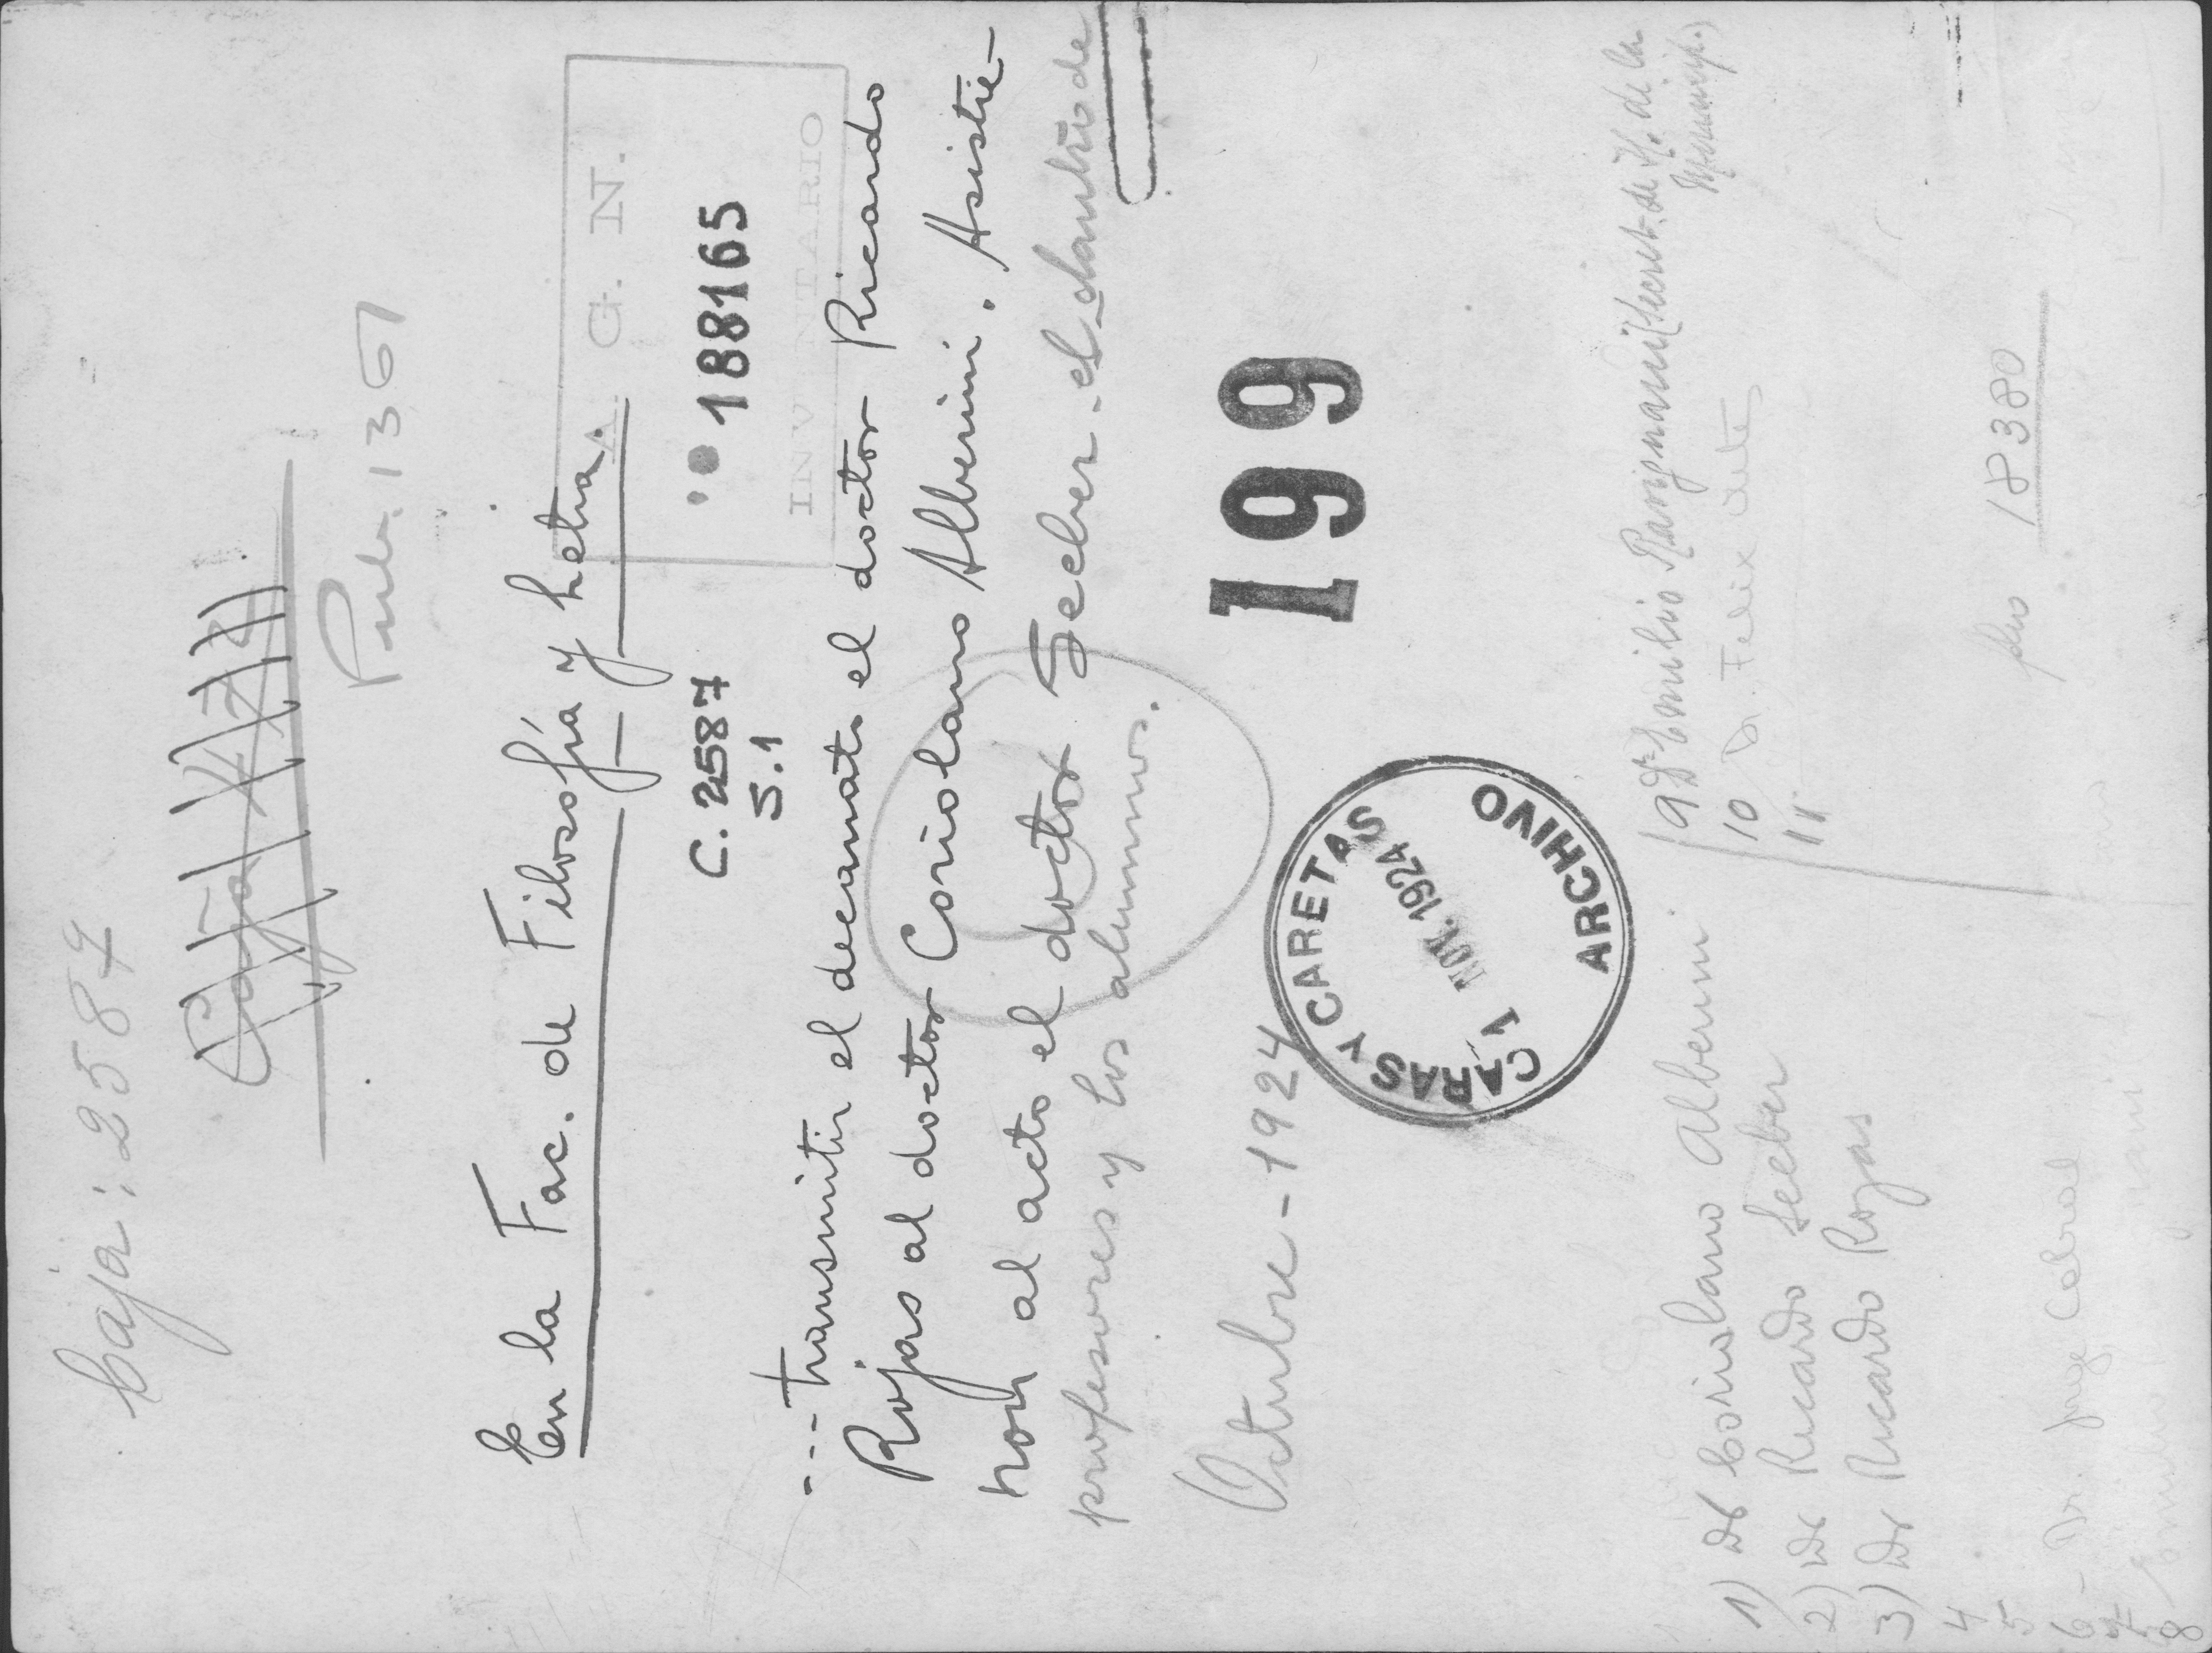 Caja: 2587
Caja
Pub. 1361
En la Fac. de Filosofía y Letras.
A. G. N.
188165
INVENTARIO
C. 2587
S.1
---transmitir el decanato el doctor Ricardo
Rojas al doctor Coriolano Alberini. Asistie-
ron al acto el doctor Seeber - el claustro de
profesores y los alumnos.
Octubre - 1924
199
CARAS Y CARETAS
1 NOV. 1924
ARCHIVO
1) Dr Coriolano Alberini
2) Dr Ricardo Seeber
3) Dr Ricardo Rojas
4
5
6 - Dr. Jorge Cabral
7
8 Emilio
9 Dr Emilio Ravignani (Secret. de H. de la Municip.)
10 Dr. Felix
11
18380